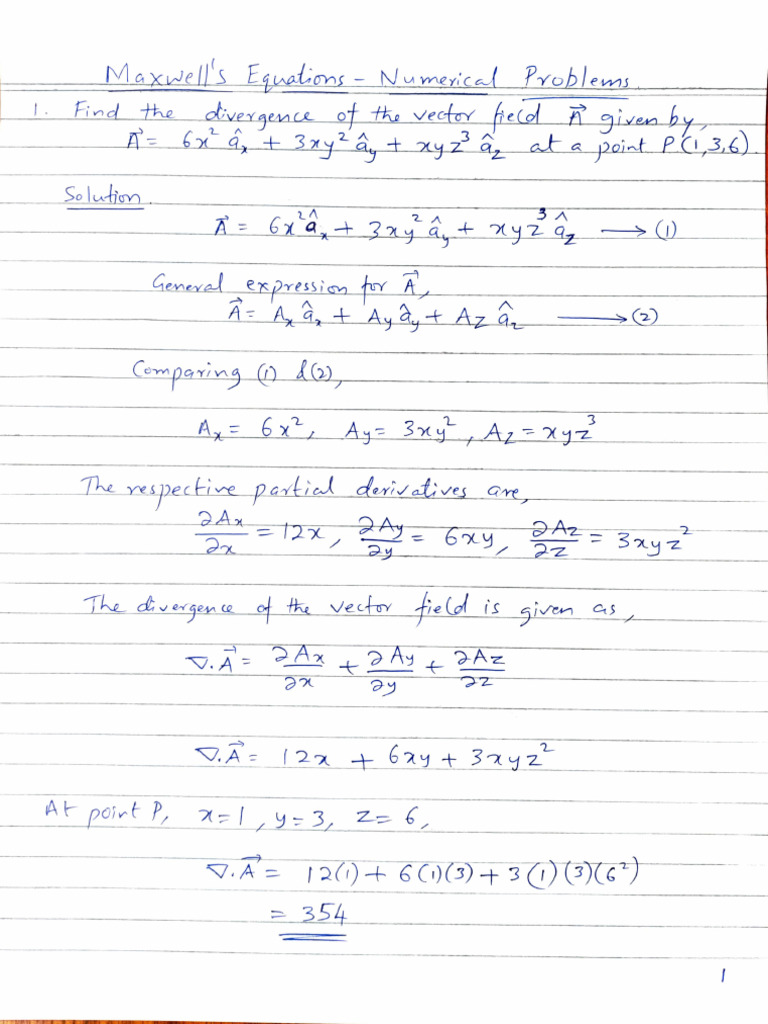 Maxwell's Equations - Numerical Problems.
1. Find the divergence of the vector field A⃗ given by,
A⃗ = 6x² âₓ + 3xy² â_y + xyz³ â_z at a point P(1,3,6).
Solution.
A⃗ = 6x² âₓ + 3xy² â_y + xyz³ â_z ⟶ (1)
General expression for A⃗,
A⃗ = Aₓ âₓ + A_y â_y + A_z â_z ⟶ (2)
Comparing (1) & (2),
Aₓ = 6x², A_y = 3xy², A_z = xyz³
The respective partial derivatives are,
∂Aₓ/∂x = 12x, ∂A_y/∂y = 6xy, ∂A_z/∂z = 3xyz²
The divergence of the vector field is given as,
∇.A⃗ = ∂Aₓ/∂x + ∂A_y/∂y + ∂A_z/∂z
∇.A⃗ = 12x + 6xy + 3xyz²
At point P, x=1, y=3, z=6,
∇.A⃗ = 12(1) + 6(1)(3) + 3(1)(3)(6²)
= 354
1